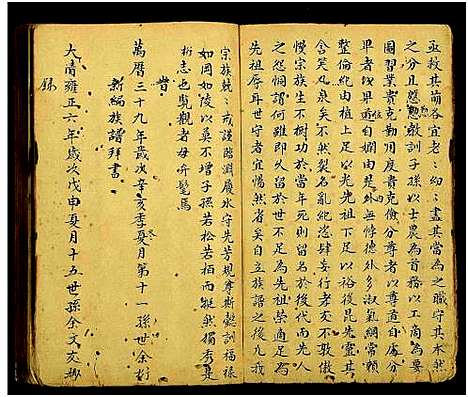 亟救其前各宜老老幼幼盡其當為之職守其本然
之分且懇懇教訓子孫以士農為首務以工商為判
圖習業貴克勤用度貴克儉分尊者以尊道自處分
卑者以卑道自嫻由是外無悖德外多淑氣綱常賴
整倫紀由植上足以光先祖下足以裕後昆先靈其
含笑九泉矣不然裂名亂紀恣肆妄行老者不教傲
慢宗族生不樹功於當年死則留名於後代而先人
之怨恫謂何雖即久留於世不足為先祖榮適足為
先祖辱耳世守者宜惕然省矣自立族譜之後凡我
宗族兢兢戒謹臨淵履氷守先芳規尊斯懿訓福祿
如岡如陵以莫不增子孫若松若栢而挺然獨秀是
桁志也覽觀者毋忻髦焉
昔
萬曆三十九年歲次辛亥季夏月第十一孫世余桁
新編族譜拜書
大清雍正六年歲次戊申夏月十五世孫余文亥抄
錄